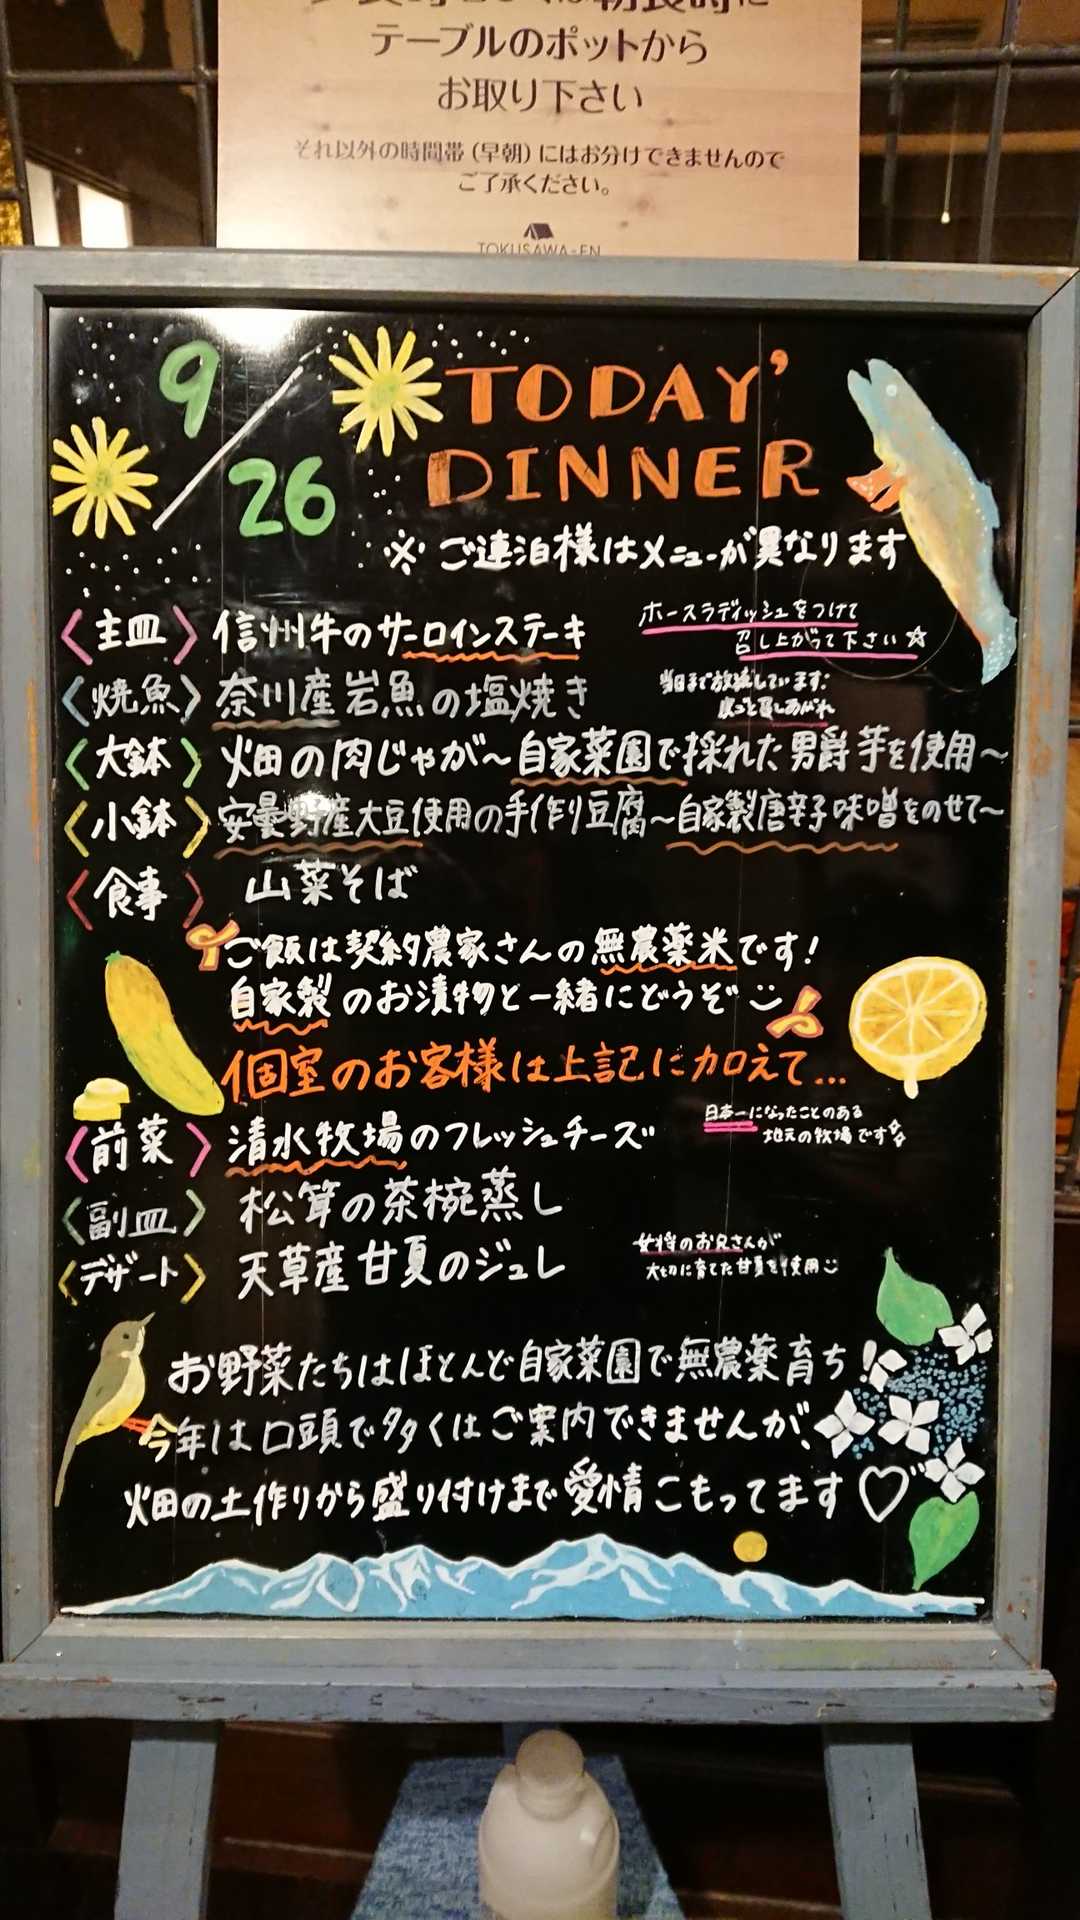 テーブルのポットから
お取り下さい
それ以外の時間帯（早朝）にはお分けできませんので
ご了承ください。
TOKUSAWA-EN
9/26
TODAY'
DINNER
※ご連泊様はメニューが異なります
〈主皿〉信州牛のサーロインステーキ
ホースラディッシュをつけて
召し上がって下さい☆
〈焼魚〉奈川産岩魚の塩焼き
当日まで放流しています!
皮ごと召しあがれ
〈大鉢〉畑の肉じゃが〜自家菜園で採れた男爵芋を使用〜
〈小鉢〉安曇野産大豆使用の手作り豆腐〜自家製唐辛子味噌をのせて〜
〈食事〉山菜そば
ご飯は契約農家さんの無農薬米です!
自家製のお漬物と一緒にどうぞ
個室のお客様は上記に加えて...
〈前菜〉清水牧場のフレッシュチーズ
日本一になったことのある
地元の牧場です
〈副皿〉松茸の茶椀蒸し
〈デザート〉天草産甘夏のジュレ
女将のお兄さんが
大切に育てた甘夏を使用
お野菜たちはほとんど自家菜園で無農薬育ち!
今年は口頭で多くはご案内できませんが、
畑の土作りから盛り付けまで愛情こもってます♡